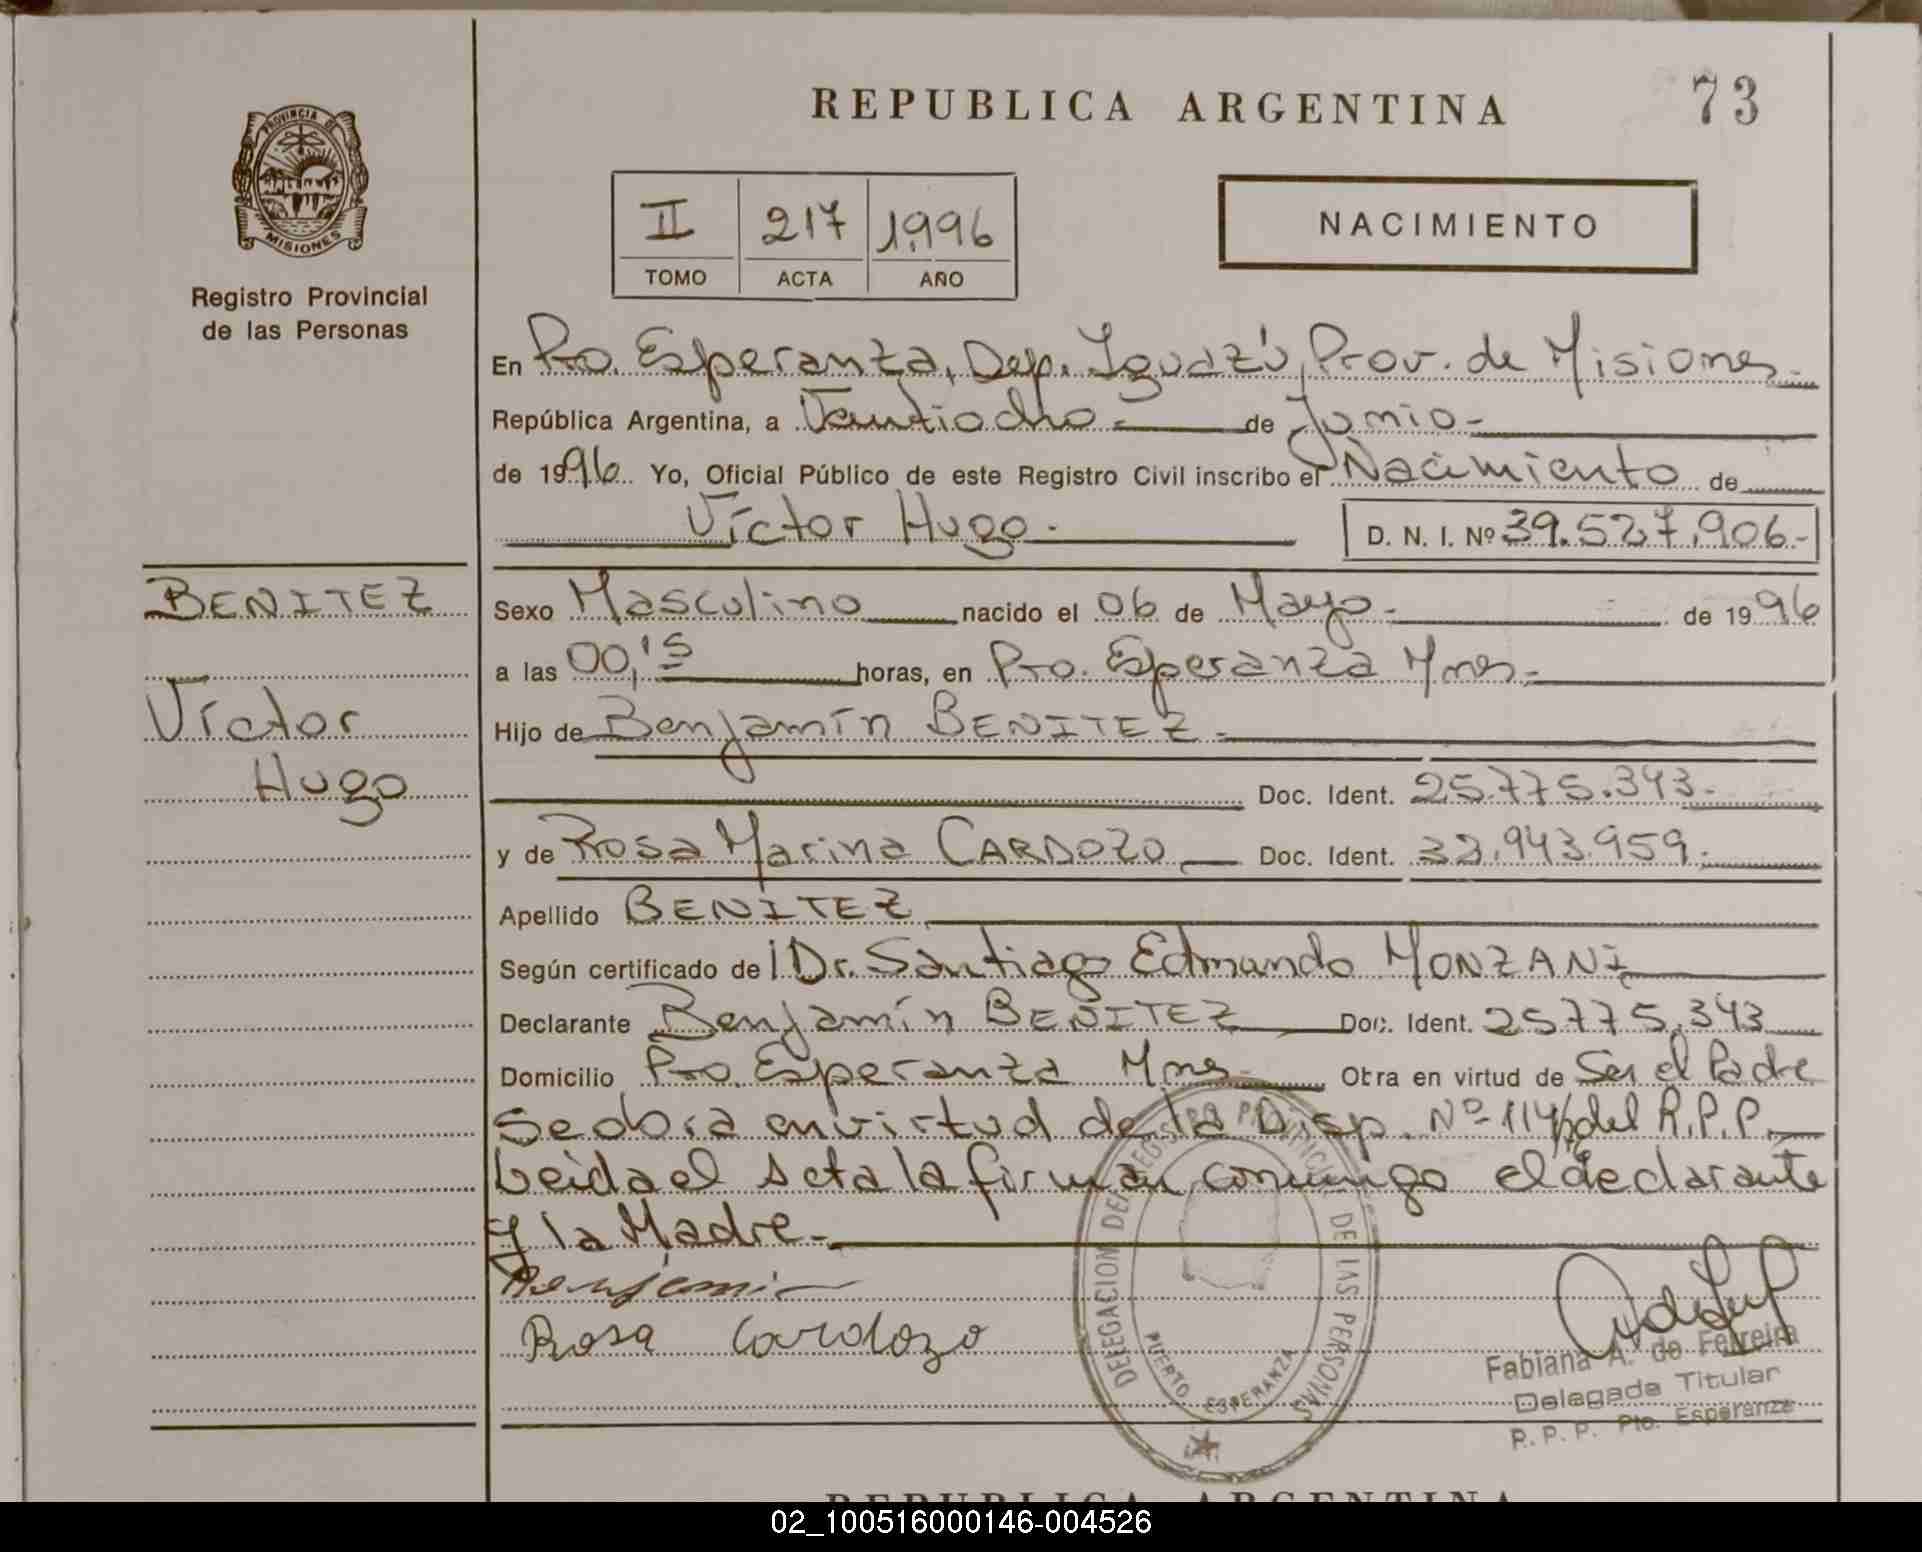 REPUBLICA ARGENTINA
73
PROVINCIA DE
MISIONES
Registro Provincial
de las Personas
II 217 1996
TOMO ACTA AÑO
NACIMIENTO
En Pto. Esperanza, Dep. Iguazú, Prov. de Misiones.
República Argentina, a Veintiocho de Junio
de 1996. Yo, Oficial Público de este Registro Civil inscribo el Nacimiento de
Víctor Hugo.
D. N. I. Nº 39.527.906.-
BENITEZ
Víctor
Hugo
Sexo Masculino nacido el 06 de Mayo de 1996
a las 00,15 horas, en Pto. Esperanza Mnes.
Hijo de Benjamín BENITEZ.
Doc. Ident. 25.775.343.
y de Rosa Marina CARDOZO Doc. Ident. 32.943.959.
Apellido BENITEZ
Según certificado de Dr. Santiago Edmundo MONZANI
Declarante Benjamín BENITEZ Doc. Ident. 25.775.343
Domicilio Pto. Esperanza Mnes Obra en virtud de Ser el Padre
Se obra en virtud de la Disp. Nº 114/ del R.P.P.
Leida el acta la firman conmigo el declarante
y la Madre.
Benjamin
Rosa Cardozo
DELEGACION DEL REGISTRO PROVINCIAL DE LAS PERSONAS
PUERTO ESPERANZA
Fabiana A. de Ferreira
Delegada Titular
R. P. P. Pto. Esperanza
REPUBLICA ARGENTINA
02_100516000146-004526